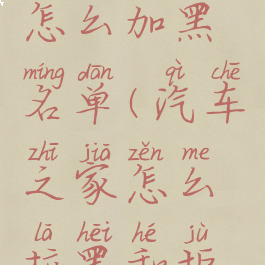 怎么加黑
míng dān qì chē
名单(汽车
zhī jiā zěn me
之家怎么
lā hēi hé jù
拉黑和拒